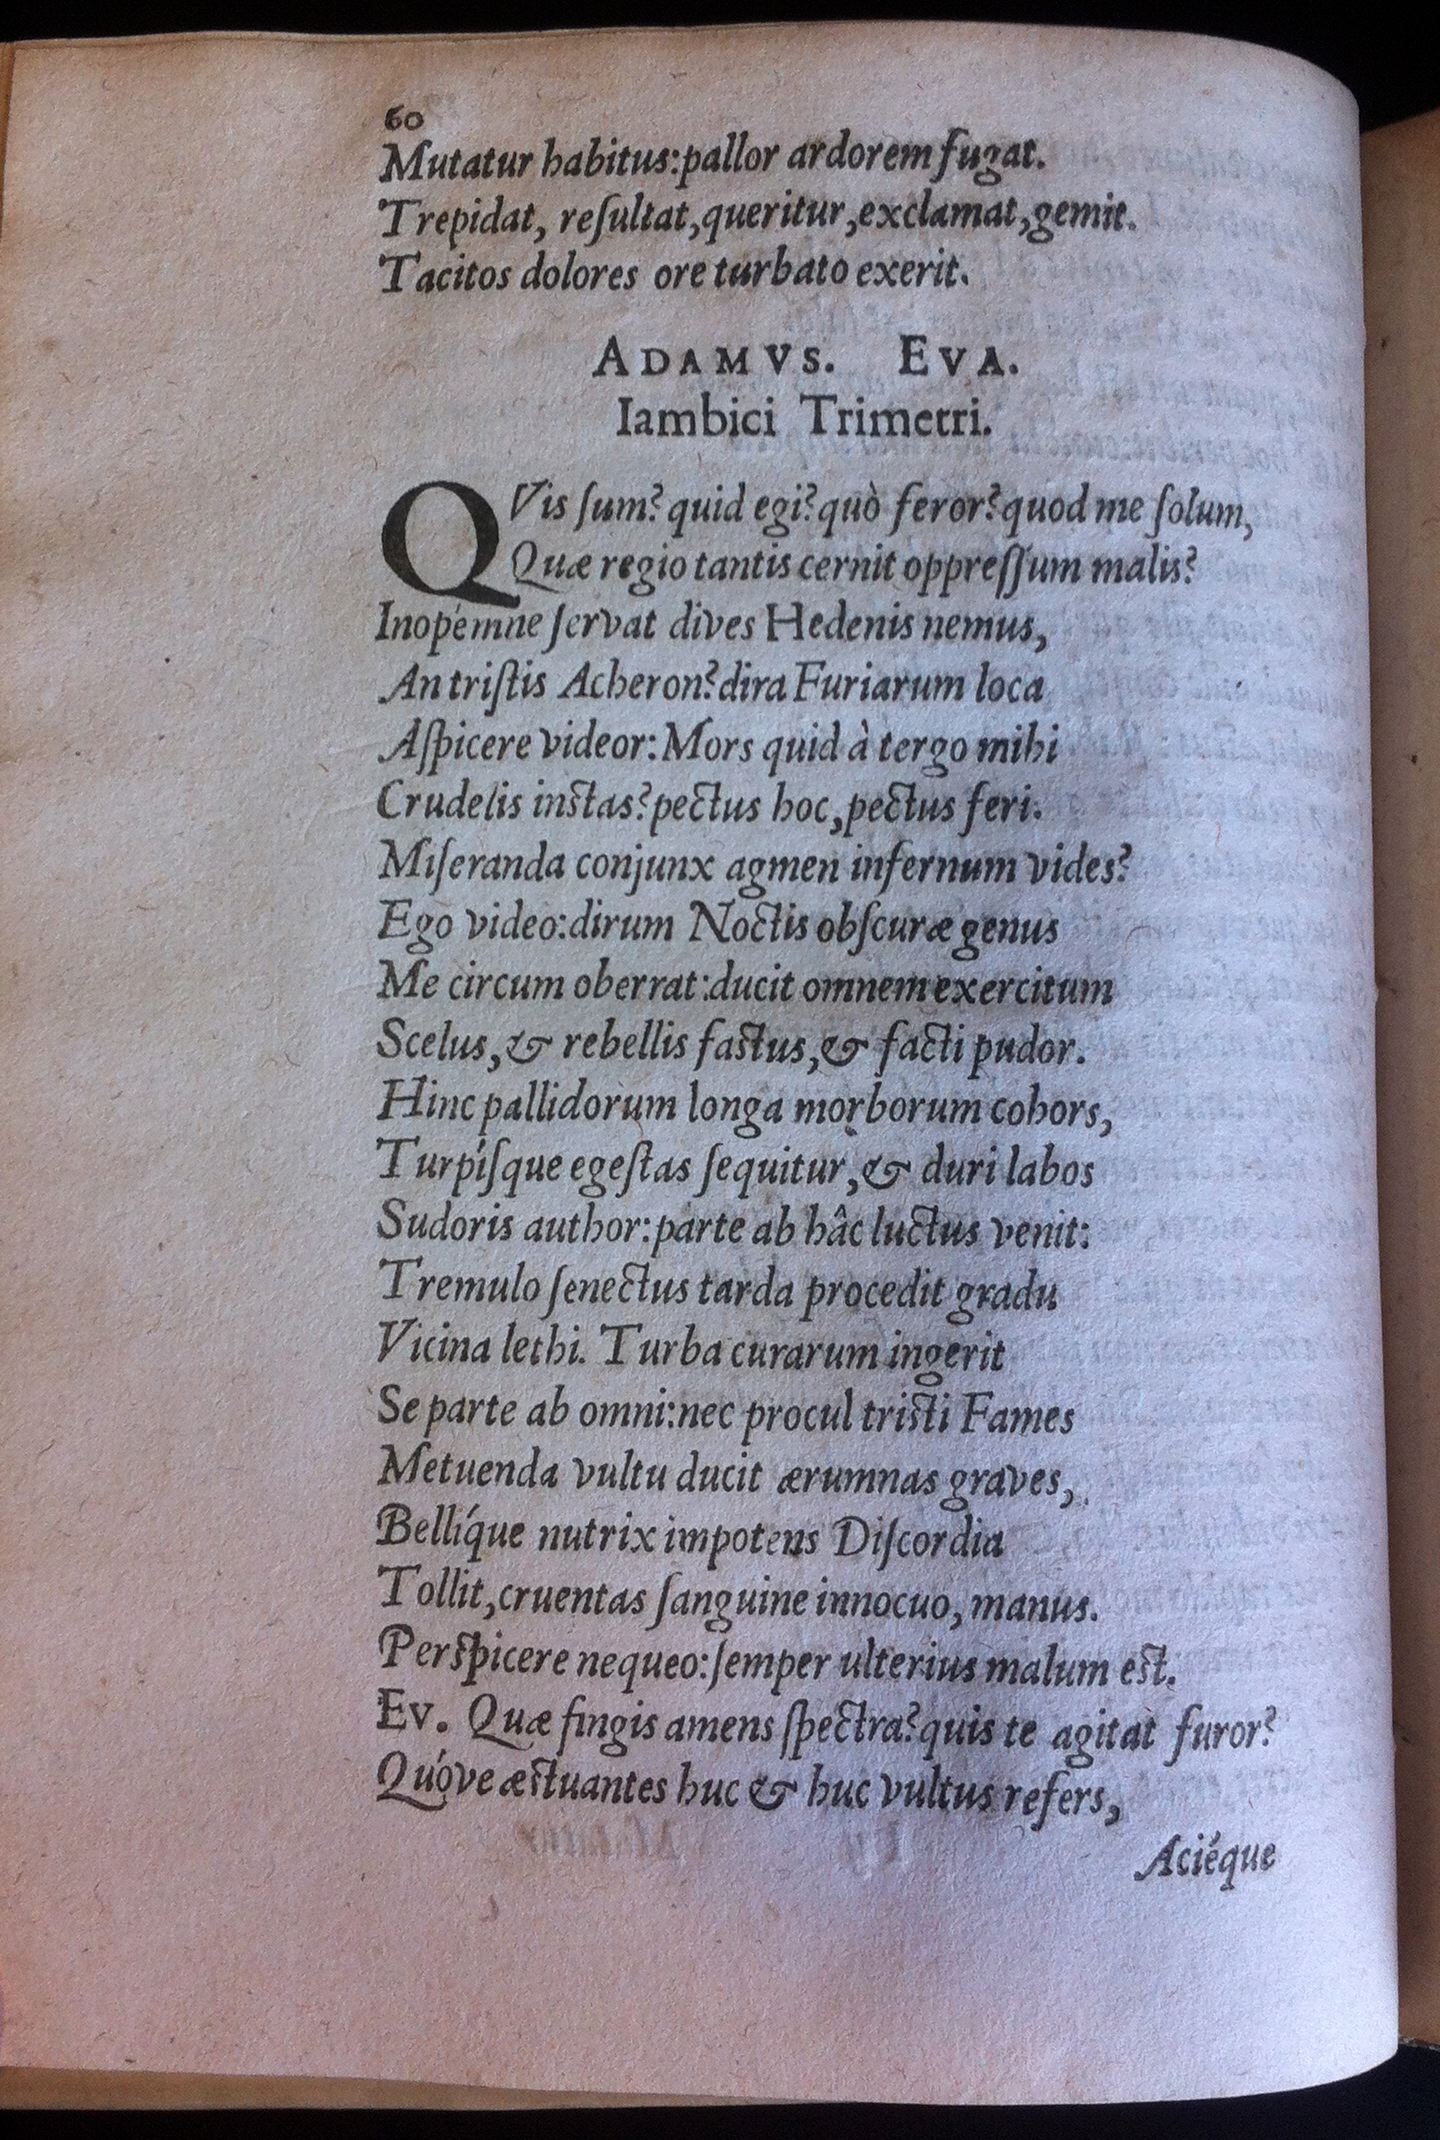 60
Mutatur habitus: pallor ardorem fugat.
Trepidat, reſultat, queritur, exclamat, gemit.
Tacitos dolores ore turbato exerit.
ADAMVS. EVA.
Iambici Trimetri.
QVis ſum? quid egi? quò feror? quod me ſolum,
Quæ regio tantis cernit oppreſſum malis?
Inopémne ſervat dives Hedenis nemus,
An triſtis Acheron? dira Furiarum loca
Aſpicere videor: Mors quid à tergo mihi
Crudelis inſtas? pectus hoc, pectus feri.
Miſeranda conjunx agmen infernum vides?
Ego video: dirum Noctis obſcuræ genus
Me circum oberrat: ducit omnem exercitum
Scelus, & rebellis faſtus, & facti pudor.
Hinc pallidorum longa morborum cohors,
Turpíſque egeſtas ſequitur, & duri labos
Sudoris author: parte ab hâc luctus venit:
Tremulo ſenectus tarda procedit gradu
Vicina lethi. Turba curarum ingerit
Se parte ab omni: nec procul triſti Fames
Metuenda vultu ducit ærumnas graves,
Bellíque nutrix impotens Diſcordia
Tollit, cruentas ſanguine innocuo, manus.
Perſpicere nequeo: ſemper ulterius malum eſt.
EV. Quæ fingis amens ſpectra? quis te agitat furor?
Quóve æſtuantes huc & huc vultus refers,
Aciéque